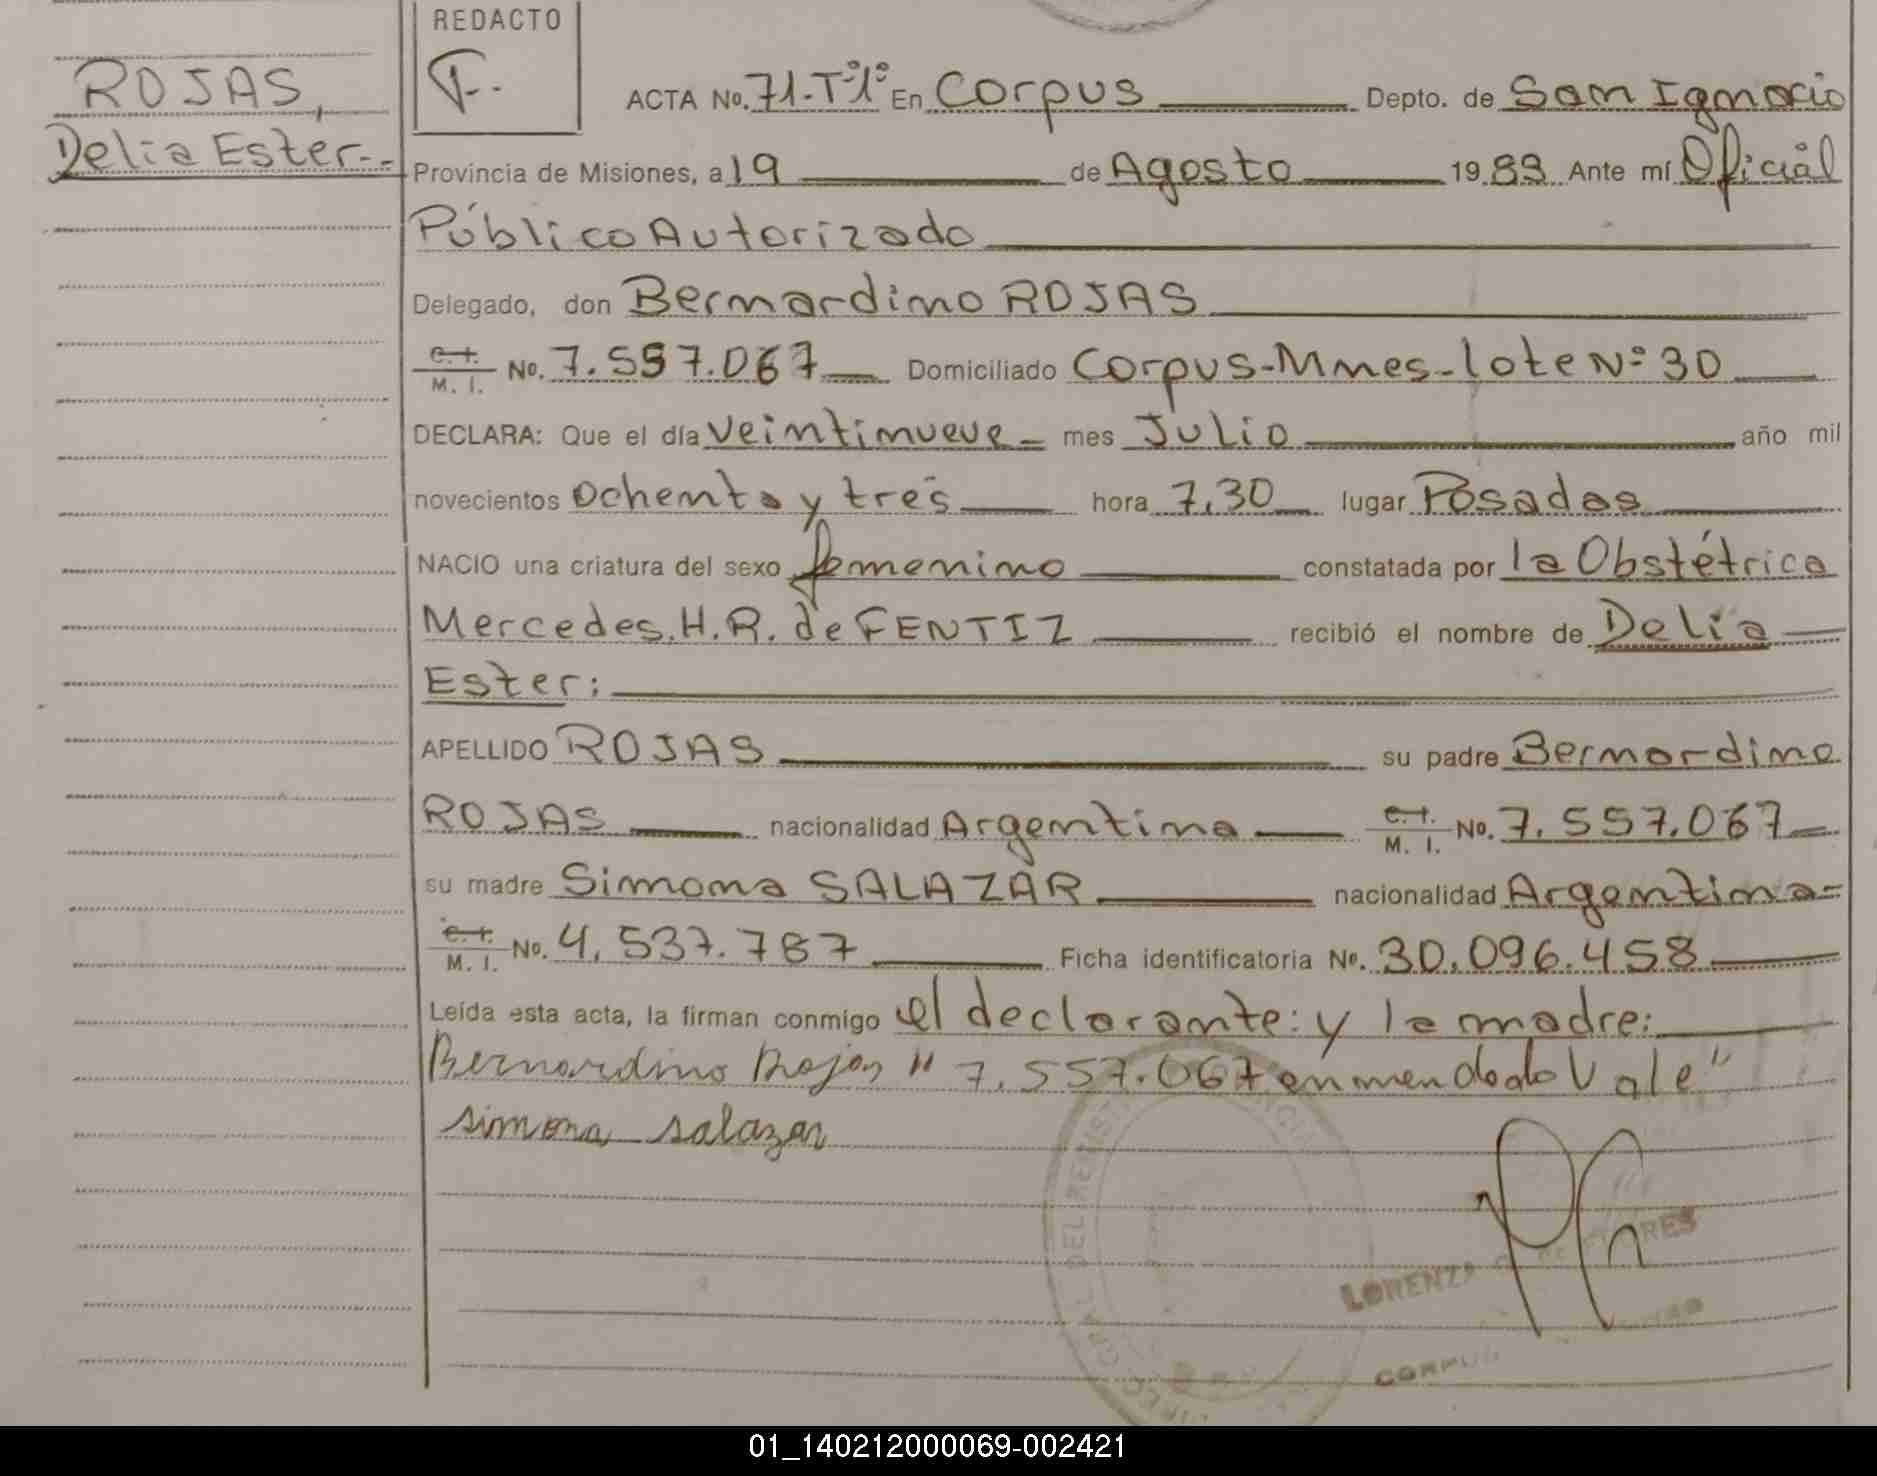 REDACTO
F.
ROJAS,
Delia Ester.--
ACTA No. 71-Tº1º En Corpus Depto. de San Ignacio
Provincia de Misiones, a 19 de Agosto 1983 Ante mí Oficial
Público Autorizado
Delegado, don Bernardino ROJAS
C.I. M. I. No. 7.557.067 Domiciliado Corpus-Mnes-lote Nº 30
DECLARA: Que el día veintinueve mes Julio año mil
novecientos ochenta y tres hora 7,30 lugar Posadas
NACIO una criatura del sexo femenino constatada por la Obstétrica
Mercedes.H.R. de FENTIZ recibió el nombre de Delia
Ester:
APELLIDO ROJAS su padre Bernardino
ROJAS nacionalidad Argentina C.I. M. I. No. 7.557.067
su madre Simona SALAZAR nacionalidad Argentina=
C.I. M. I. No. 4.537.787 Ficha identificatoria No. 30.096.458
Leída esta acta, la firman conmigo el declarante: y la madre:
Bernardino Rojas " 7.557.067 enmendado Vale"
simona salazar
DEL REGIST
LORENZA RES
CORPUS
01_140212000069-002421